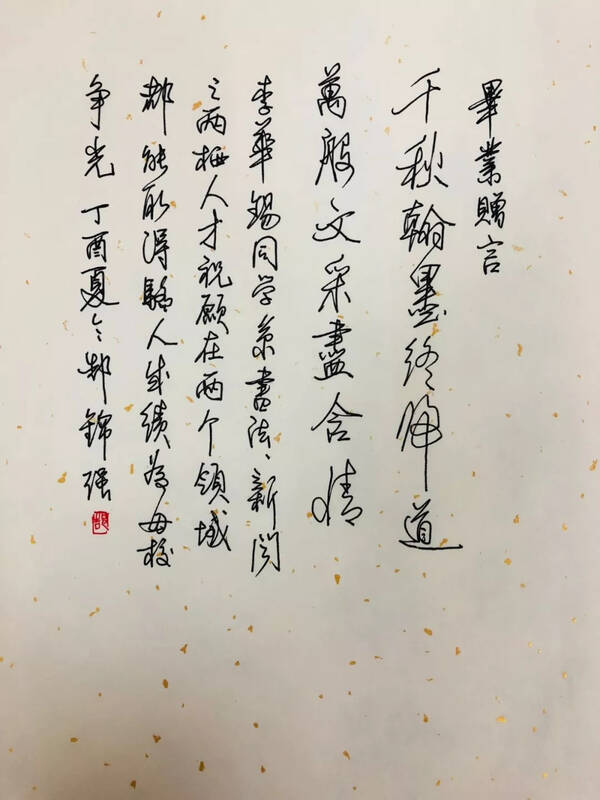 畢業贈言
千秋翰墨終歸道
萬般文采盡含情
李華錫同學系書法、新闻
之两栖人才祝願在两个領域
都能取得驕人成績為母校
争光 丁酉夏 錦强